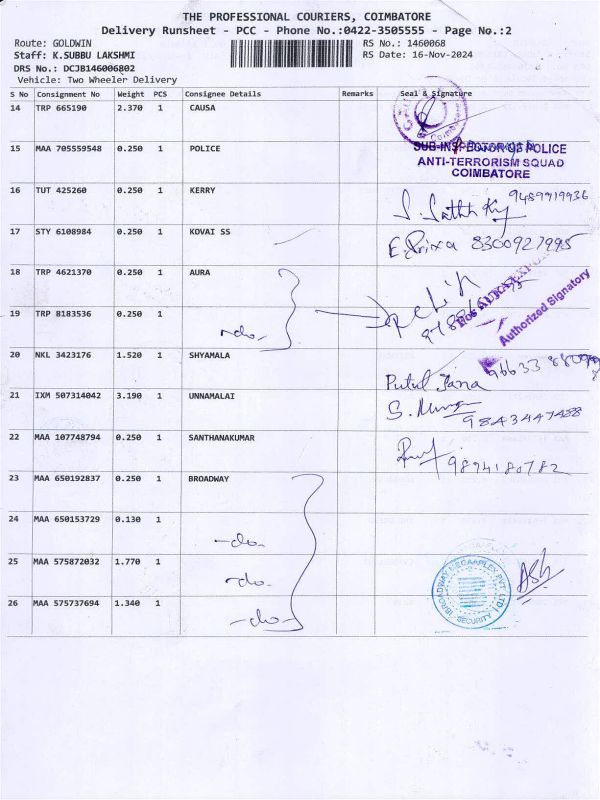 THE PROFESSIONAL COURIERS, COIMBATORE
Delivery Runsheet - PCC - Phone No.:0422-3505555 - Page No.:2
Route: GOLDWIN
RS No.: 1460068
Staff: K.SUBBU LAKSHMI
RS Date: 16-Nov-2024
DRS No.: DCJB146006802
Vehicle: Two Wheeler Delivery
S No Consignment No Weight PCS Consignee Details Remarks Seal & Signature
14 TRP 665190 2.370 1 CAUSA
15 MAA 705559548 0.250 1 POLICE
SUB-INSPECTOR OF POLICE
ANTI-TERRORISM SQUAD
COIMBATORE
16 TUT 425260 0.250 1 KERRY 9489919936
17 STY 6108984 0.250 1 KOVAI SS E. Prixa 8300927995
18 TRP 4621370 0.250 1 AURA
Authorized Signatory
19 TRP 8183536 0.250 1
-do-
20 NKL 3423176 1.520 1 SHYAMALA
Putul Jana
21 IXM 507314042 3.190 1 UNNAMALAI
9843447488
22 MAA 107748794 0.250 1 SANTHANAKUMAR
9894180782
23 MAA 650192837 0.250 1 BROADWAY
24 MAA 650153729 0.130 1
-do-
25 MAA 575872032 1.770 1
-do-
BROADWAY MEGAAPLEX PVT LTD
SECURITY
26 MAA 575737694 1.340 1
-do-